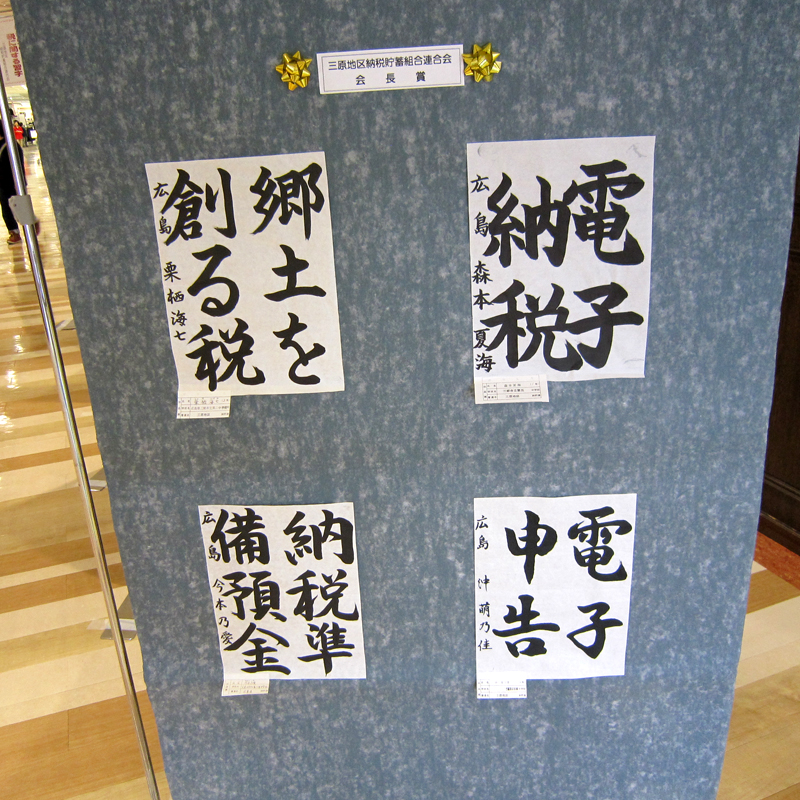 三原地区納税貯蓄組合連合会
会長賞
電子
納税
広島 森本夏海
郷土を
創る税
広島 栗栖海七
電子
申告
広島 沖萌乃佳
納税準
備預金
広島 今本乃愛